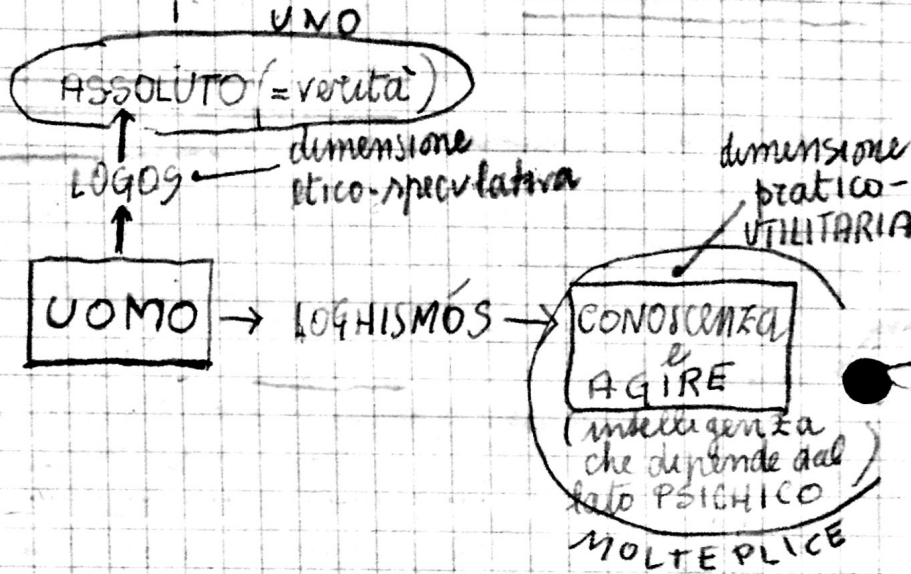 UNO
ASSOLUTO (=verità)
LOGOS
dimensione
etico-speculativa
dimensione
pratico-
UTILITARIA
UOMO → LOGHISMÓS → CONOSCENZA
e
AGIRE
(intelligenza
che dipende dal
lato PSICHICO)
MOLTEPLICE